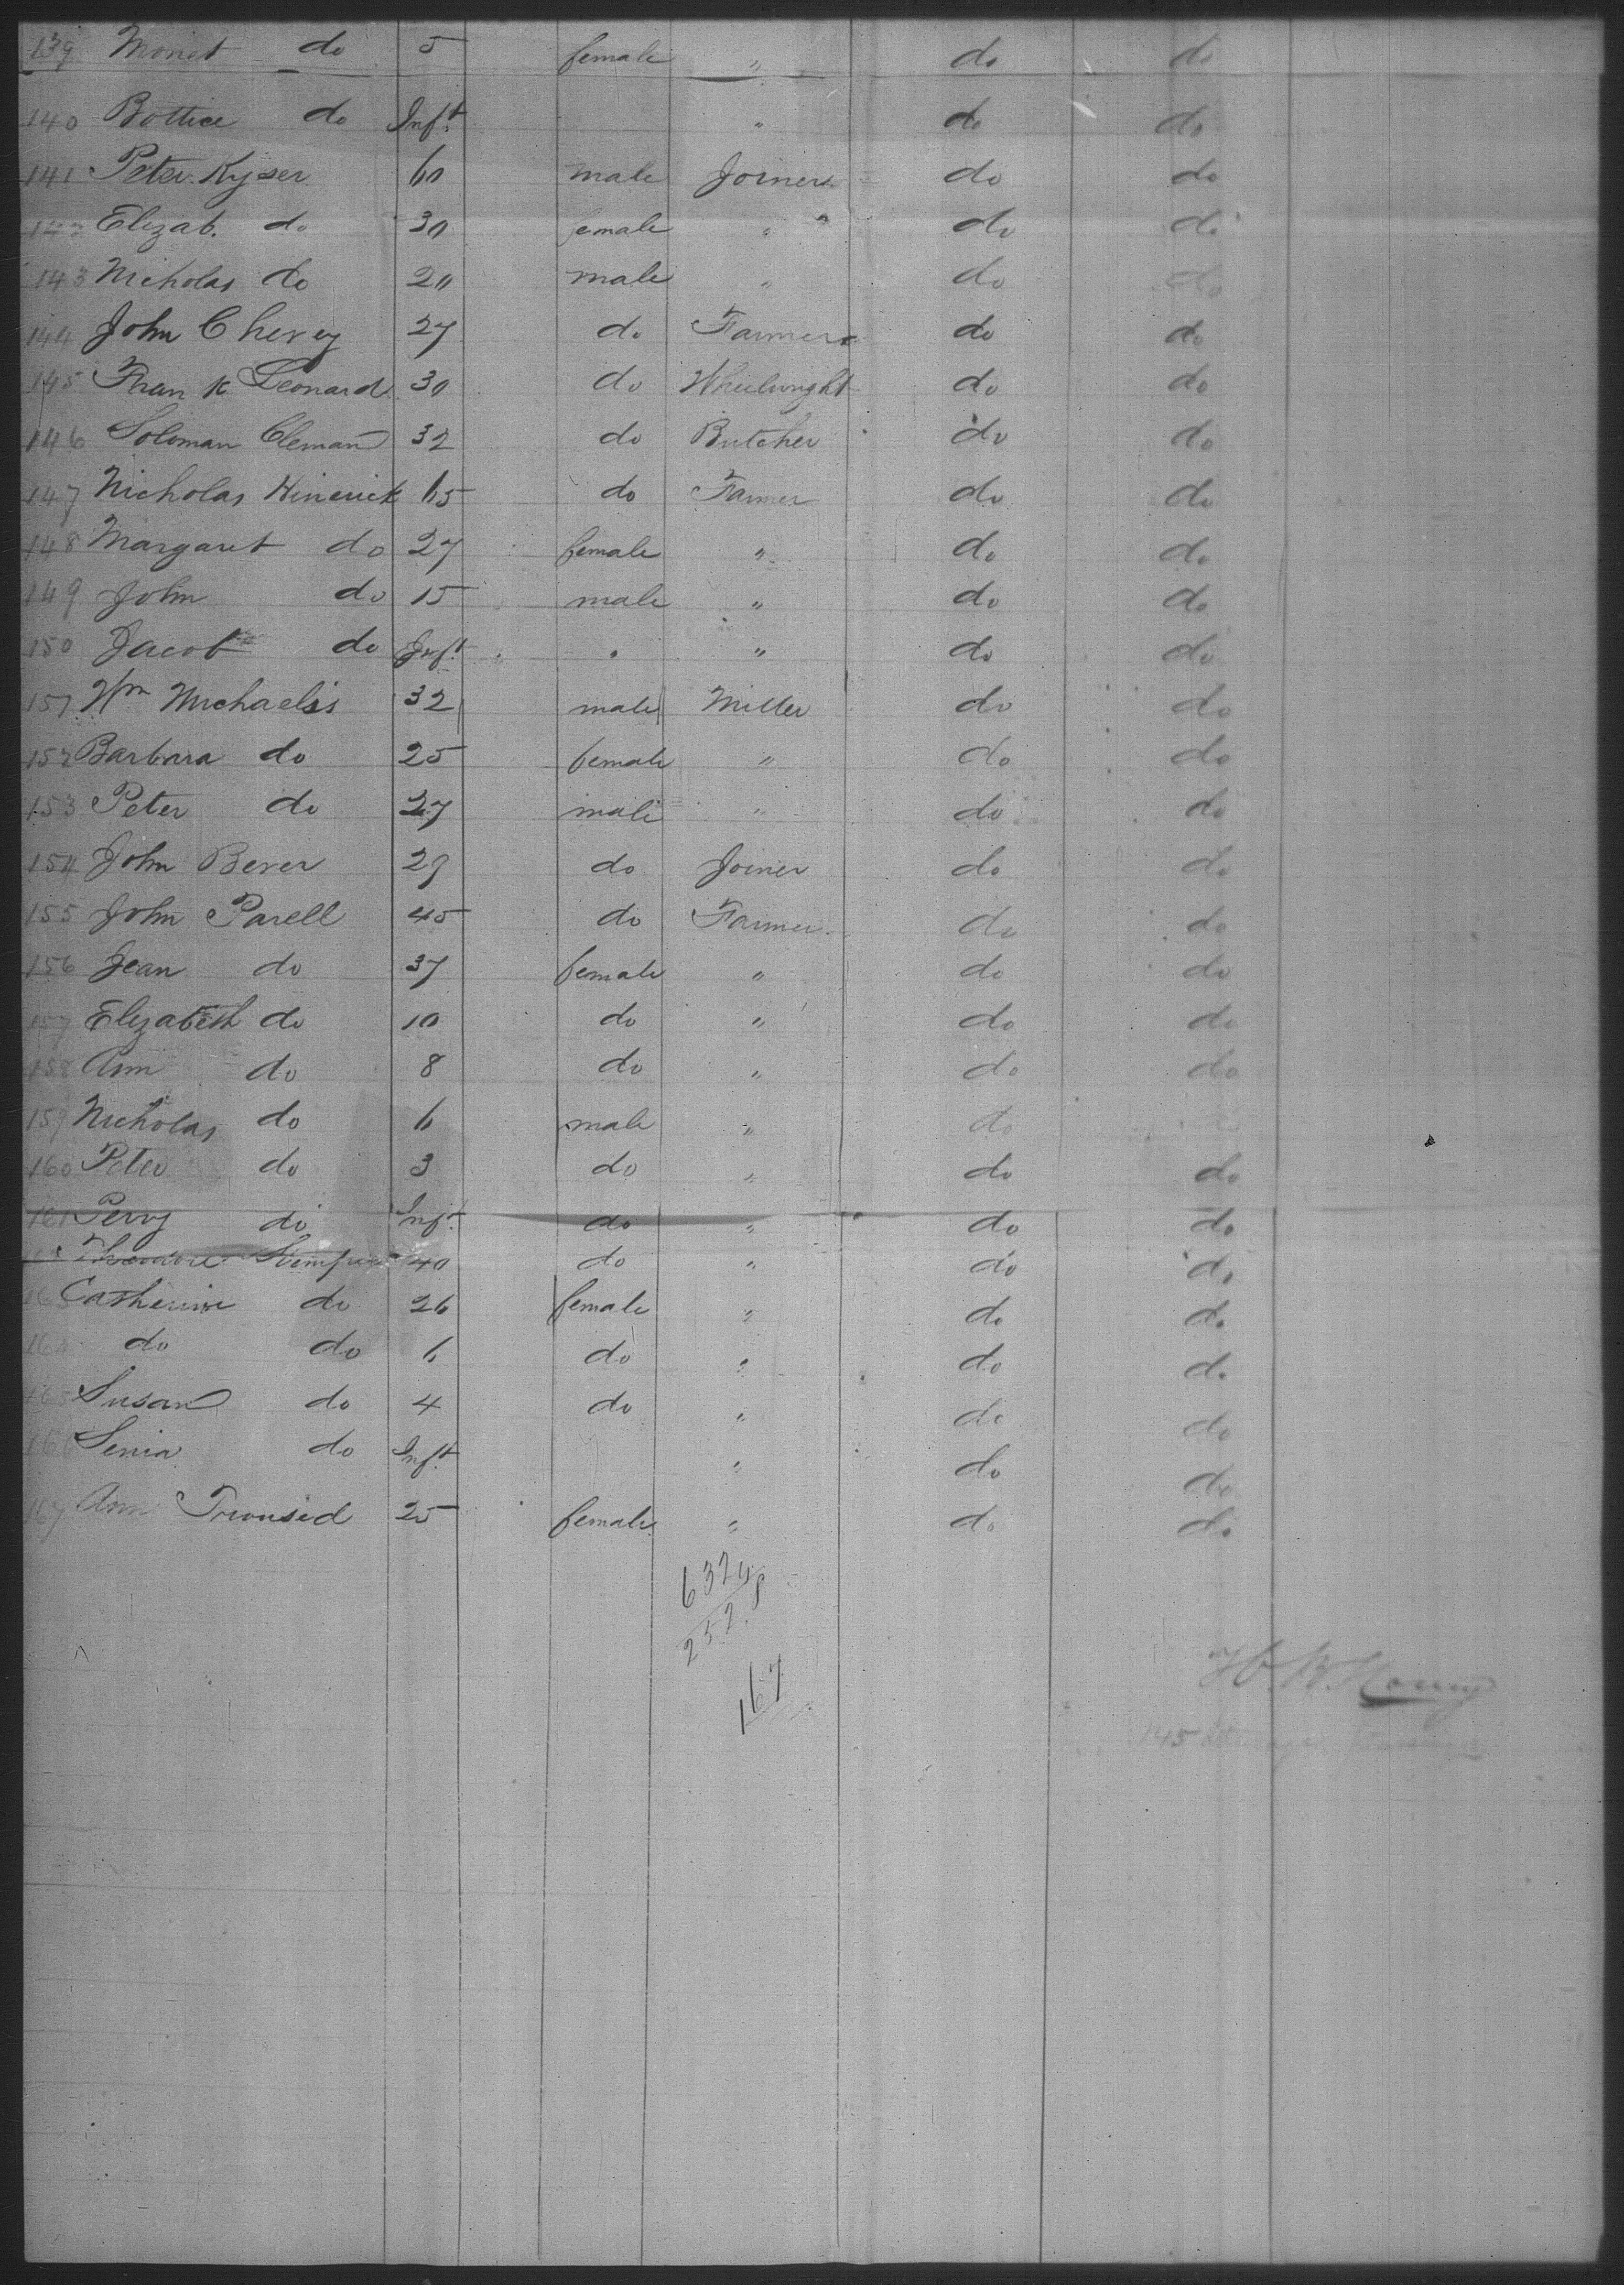 139 Monet do 5 female " do do
140 Bottice do Inft " do do
141 Peter Kyser 60 male Joiner do do
142 Elizab. do 30 female " " do do
143 Nicholas do 20 male " do do
144 John Cherey 27 do Farmer do do
145 Fran k Leonard 30 do Wheelwright do do
146 Soloman Cleman 32 do Butcher do do
147 Nicholas Hinerick 65 do Farmer do do
148 Margaret do 27 female " do do
149 John do 15 male " do do
150 Jacob do Inft " " do do
151 Wm Michaelis 32 male Miller do do
152 Barbara do 25 female " do do
153 Peter do 27 male " do do
154 John Bever 29 do Joiner do do
155 John Parell 45 do Farmer do do
156 Jean do 37 female " do do
157 Elizabeth do 10 do " do do
158 Ann do 8 do " do do
159 Nicholas do 6 male " do
160 Peter do 3 do " do do
161 Perry do Inft do " do do
Theodore 40 do " do do
163 Catherine do 26 female " do do
164 do do 6 do " do do
165 Susan do 4 do " do do
166 Senia do Inft " do do
167 Ann Trounsed 25 female " do do
632
252.8
167
145